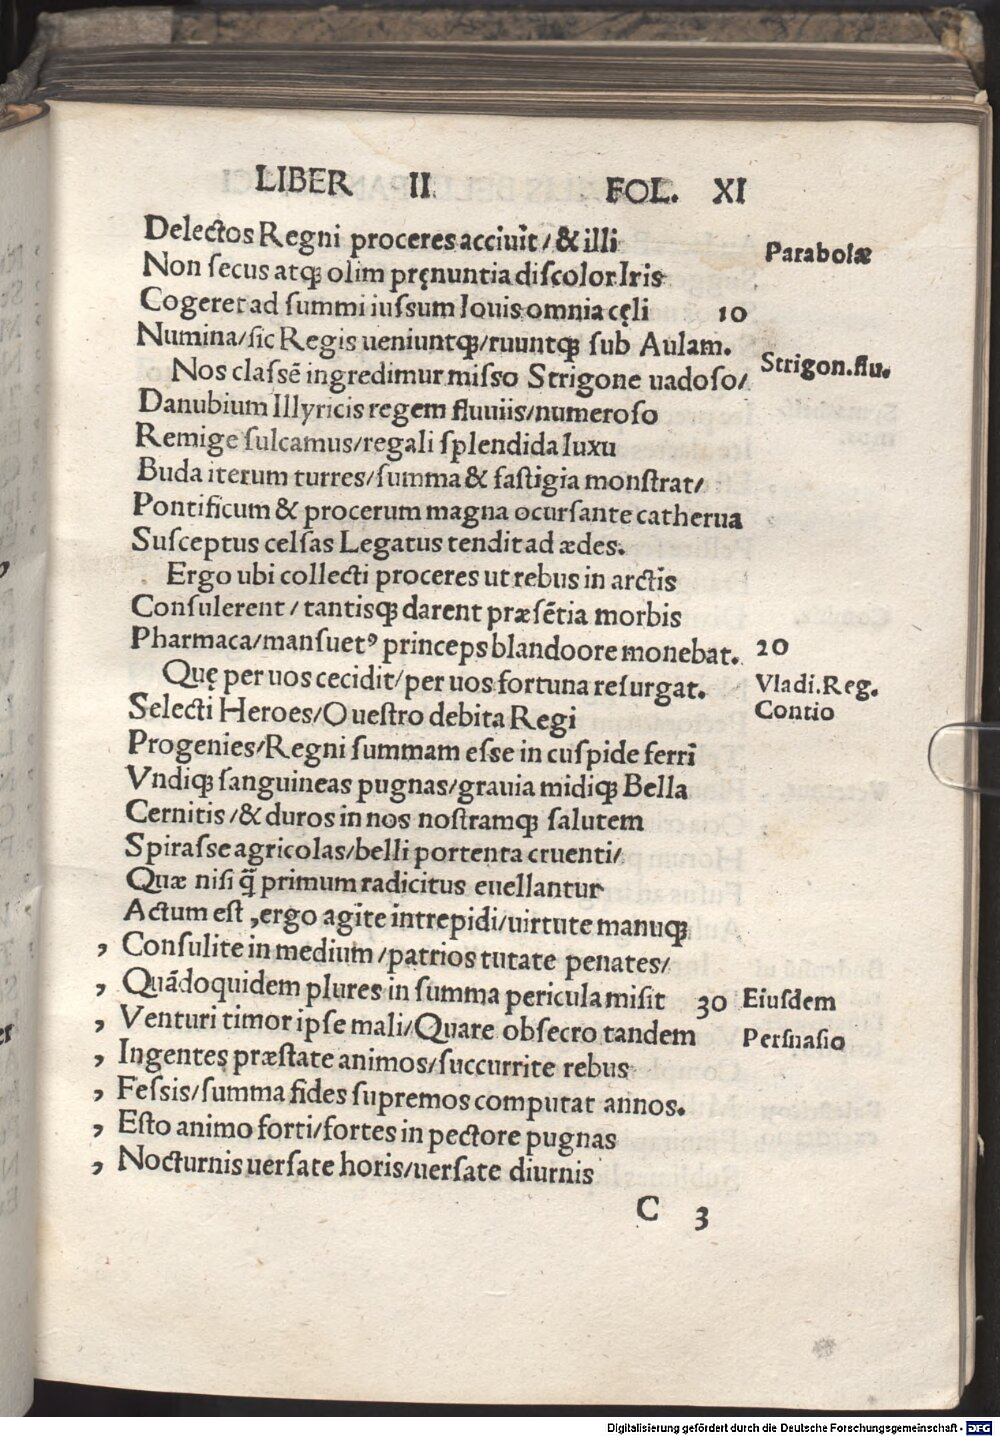 LIBER II FOL. XI
Delectos Regni proceres acciuit/& illi
Non secus atqꝫ olim pręnuntia discolor Iris Parabolæ
Cogeret ad summi iussum Iouis omnia cęli 10
Numina/sic Regis ueniuntqꝫ/ruuntqꝫ sub Aulam.
Nos classē ingredimur misso Strigone uadoso/ Strigon.flu.
Danubium Illyricis regem fluuiis/numeroso
Remige sulcamus/regali splendida luxu
Buda iterum turres/summa & fastigia monstrat/
Pontificum & procerum magna ocursante catherua
Susceptus celsas Legatus tendit ad ædes.
Ergo ubi collecti proceres ut rebus in arctis
Consulerent/tantisqꝫ darent præsētia morbis
Pharmaca/mansuetꝰ princeps blando ore monebat. 20
Quę per uos cecidit/per uos fortuna resurgat. Vladi.Reg.
Selecti Heroes/O uestro debita Regi Contio
Progenies/Regni summam esse in cuspide ferri
Vndiqꝫ sanguineas pugnas/grauia midiqꝫ Bella
Cernitis/& duros in nos nostramqꝫ salutem
Spirasse agricolas/belli portenta cruenti/
Quæ nisi q̄ primum radicitus euellantur
Actum est ,ergo agite intrepidi/uirtute manuqꝫ
, Consulite in medium/patrios tutate penates/
, Quādoquidem plures in summa pericula misit 30 Eiusdem
, Venturi timor ipse mali/Quare obsecro tandem Persuasio
, Ingentes præstate animos/succurrite rebus
, Fessis/summa fides supremos computat annos.
, Esto animo forti/fortes in pectore pugnas
, Nocturnis uersate horis/uersate diurnis
C 3
Digitalisierung gefördert durch die Deutsche Forschungsgemeinschaft - DFG